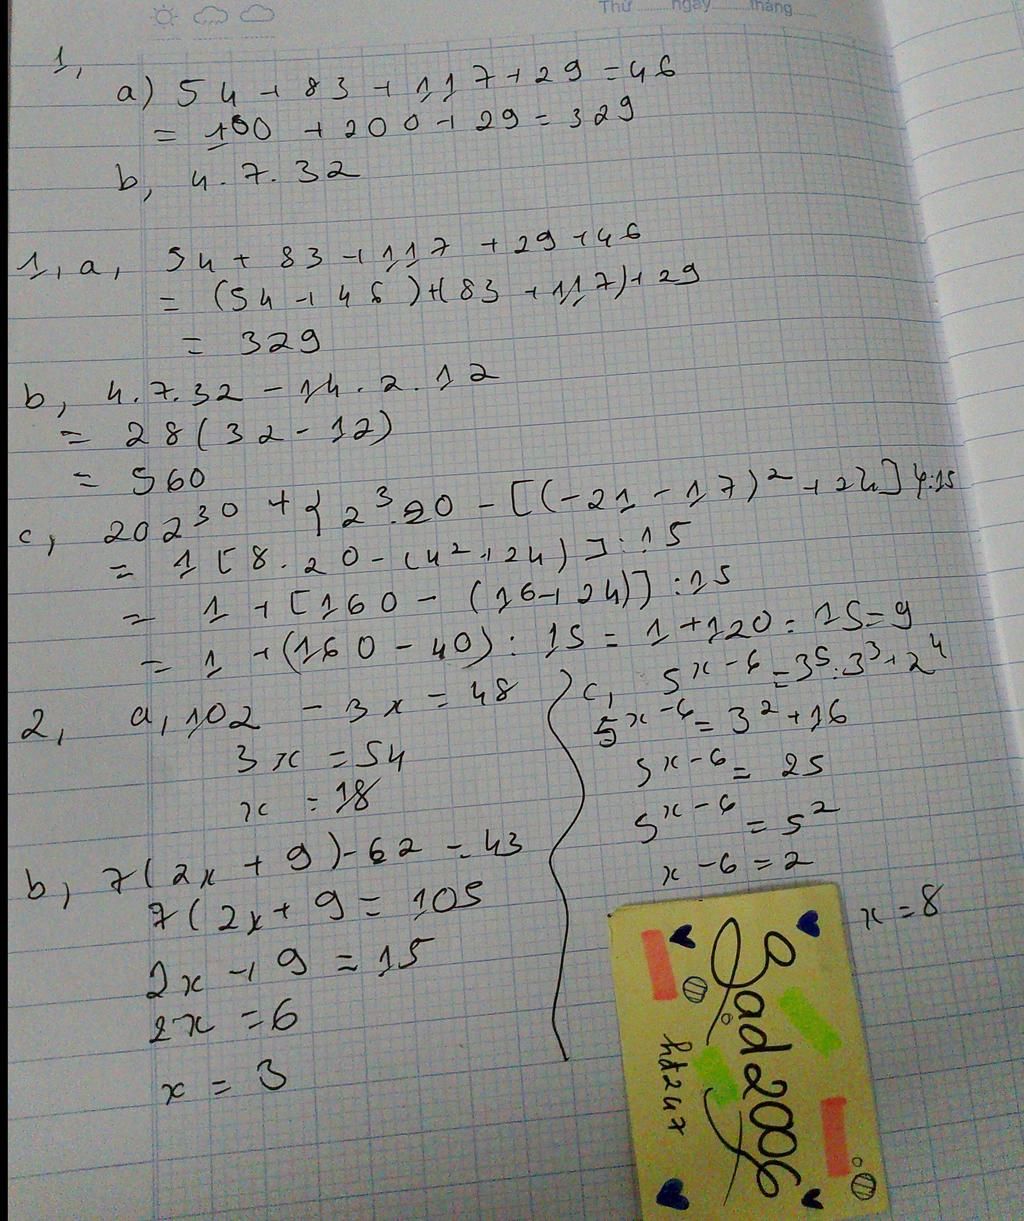 Thứ ngày tháng
1,
a) 54 + 83 + 117 + 29 = 46
= 100 + 200 + 29 = 329
b, 4.7.32
1, a, 54 + 83 + 117 + 29 + 46
= (54 + 46) + (83 + 117) + 29
= 329
b, 4.7.32 - 14.2.12
= 28(32 - 12)
= 560
c, 202³⁰ + { 2³.20 - [(-21 - 17)² + 24] }:15
= 1 [8.20 - (4² + 24)]:15
= 1 + [160 - (16 + 24)]:15
= 1 + (160 - 40) : 15 = 1 + 120 : 15 = 9
2, a, 102 - 3x = 48
3x = 54
x = 18
b, 7(2x + 9) - 62 = 43
7(2x + 9 = 105
2x + 9 = 15
2x = 6
x = 3
c, 5ˣ⁻⁶ = 3⁵:3³ + 2⁴
5ˣ⁻⁶ = 3² + 16
5ˣ⁻⁶ = 25
5ˣ⁻⁶ = 5²
x - 6 = 2
x = 8
Jad2006
hd247